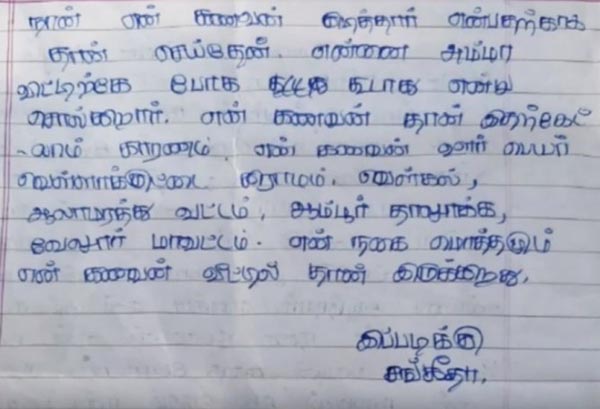 நான் என் கணவன் அடித்தார் என்பதற்காக
தான் செய்தேன். என்னை அம்மா
வீட்டிற்கே போக கூடாது என்று
சொல்கிறார். என் கணவன் தான் இதற்கெ
-லாம் காரணம். என் கணவன் ஊர் பெயர்
கிராமம்.
ஆலாமரத்து வட்டம், ஆம்பூர் தாலுாக்க,
வேலூர் மாவட்டம். என் நகை மொத்தமும்
என் கணவன் வீட்டில் தான் இருக்கிறது.
இப்படிக்கு
சங்கீதா.